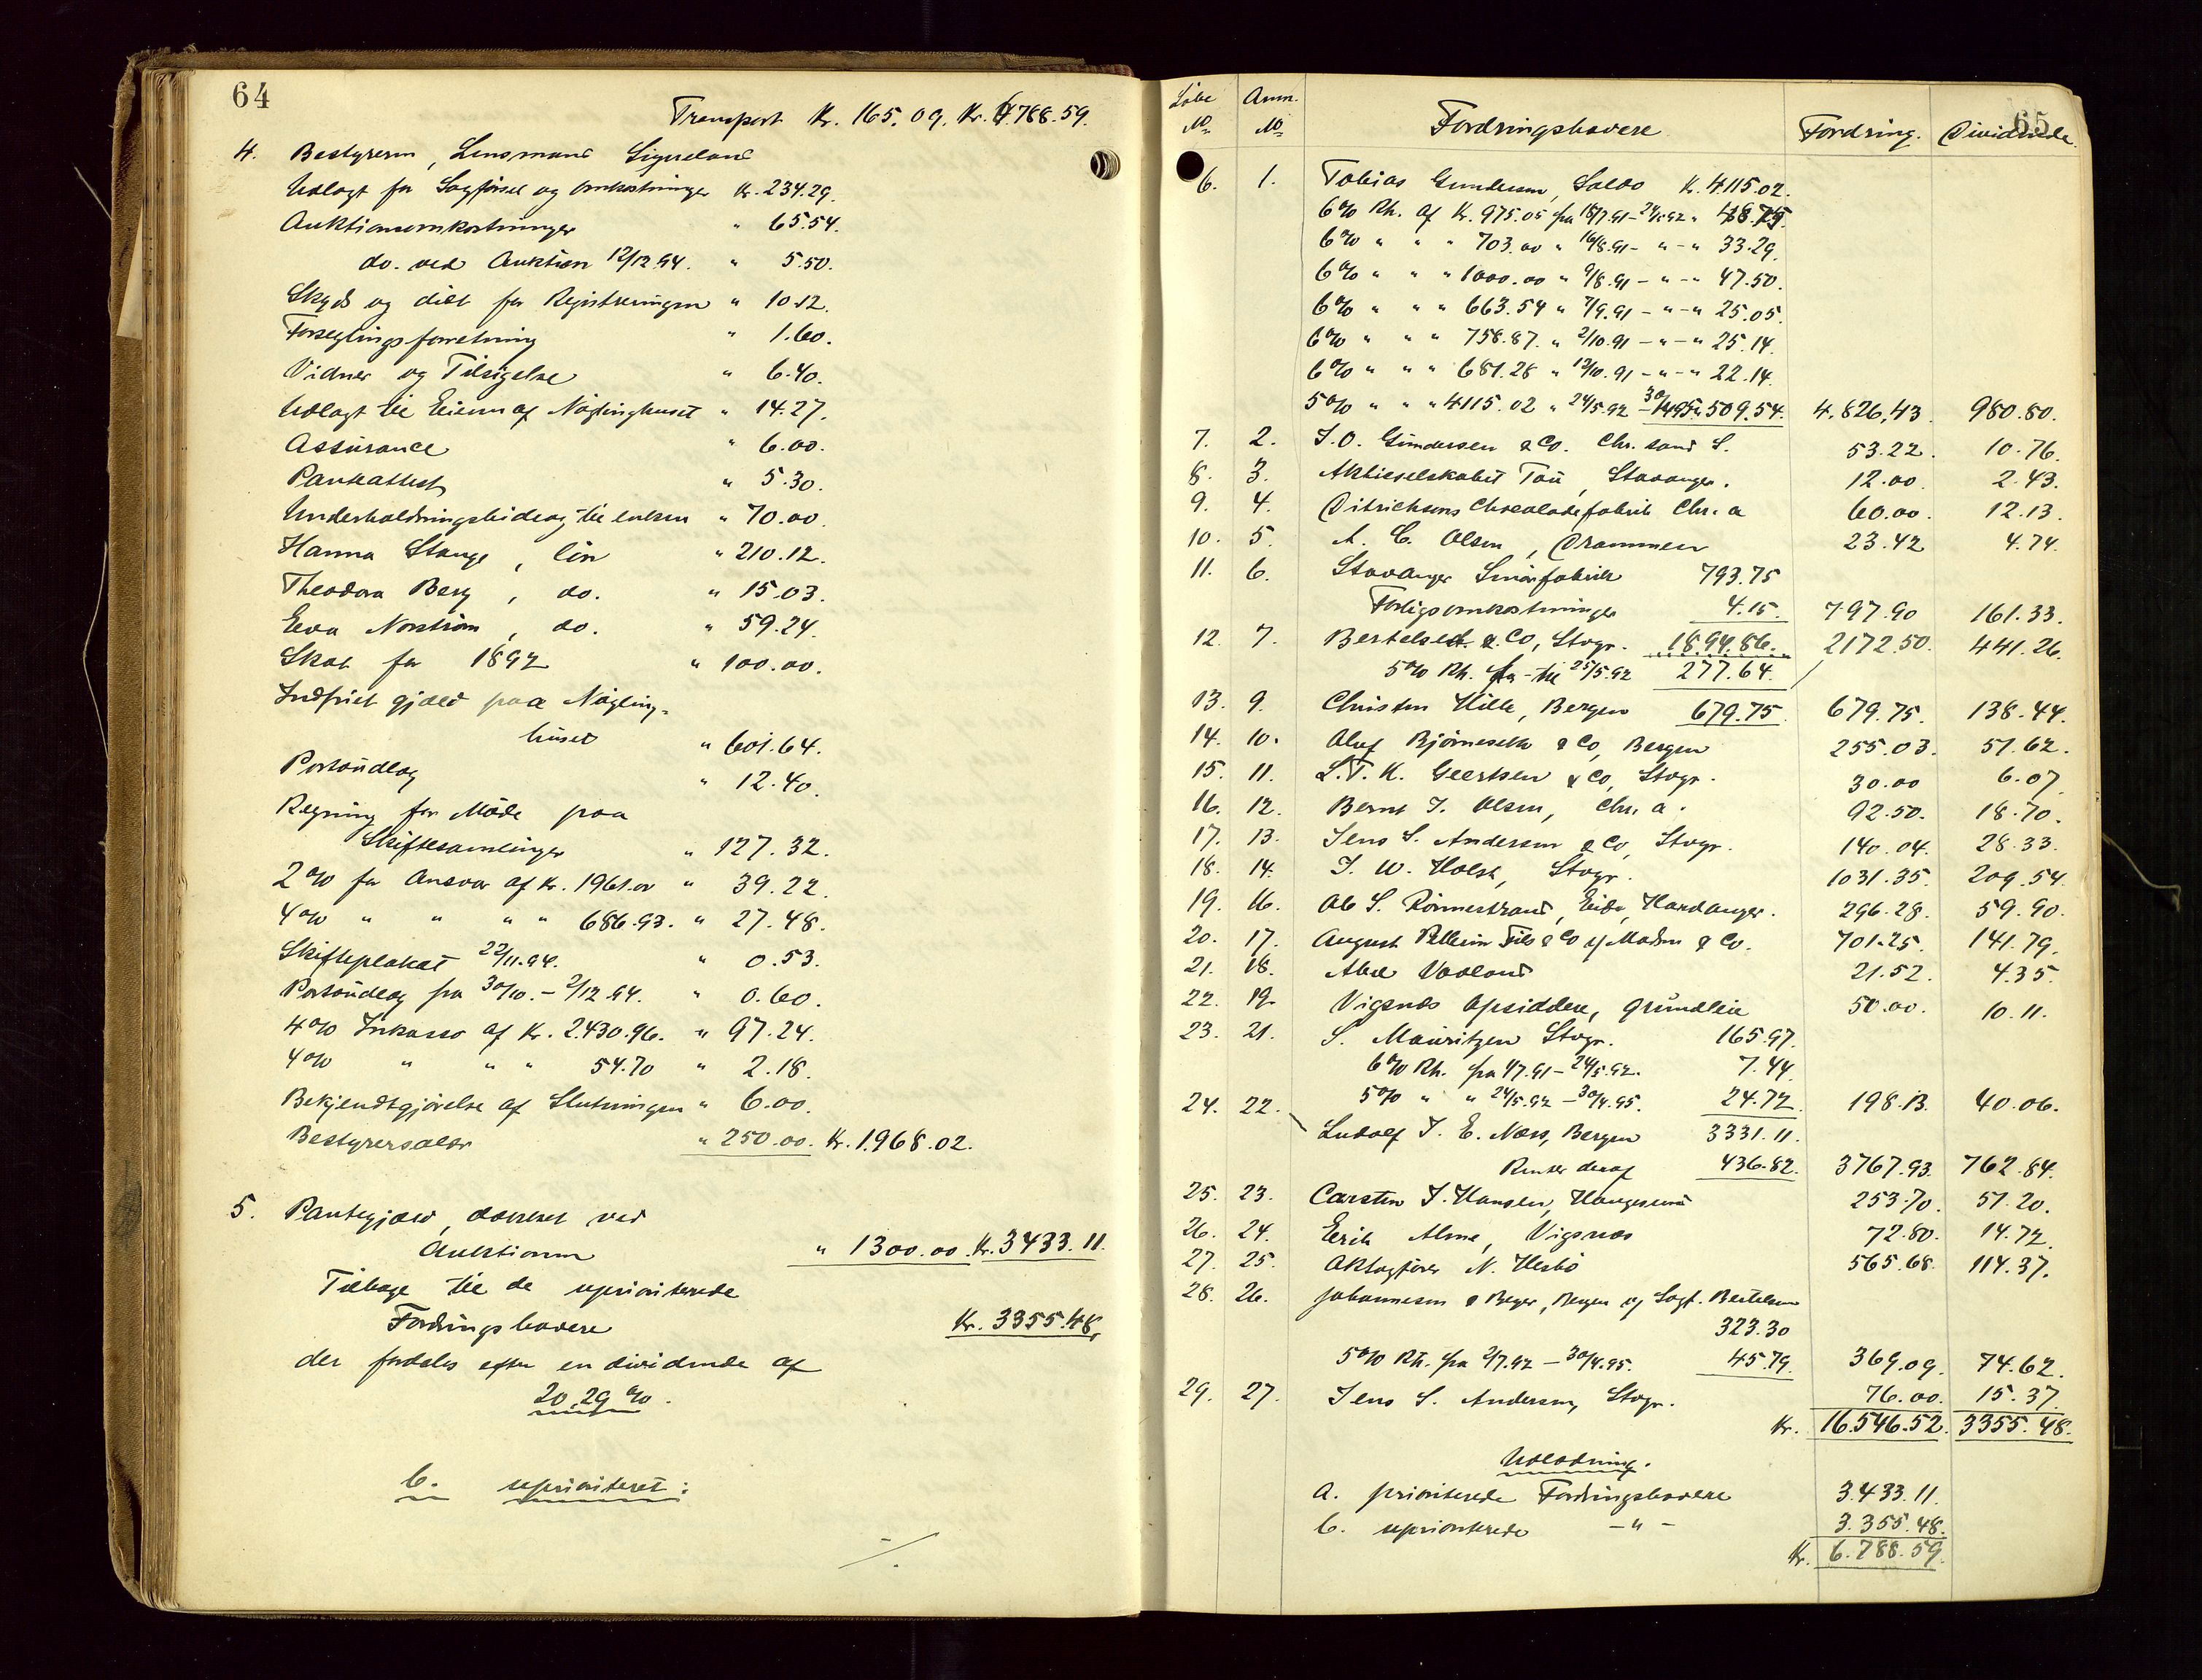 64
Transport Kr. 165.09. Kr. 6788.59.
4. Bestyreren, Lensmand Sigveland
Udlagt for Sagførsel og Omkostninger Kr. 234.29.
Auktionsomkostninger " 65.54.
do. ved Auktion 12/12.94. " 5.50.
Skyds og diæt for Registreringen " 10.12.
Forseglingsforretning " 1.60.
Vidner og Tilsigelse " 6.40.
Udlagt til Eieren af Nøglinghuset " 14.27.
Assurance " 6.00.
Panteattest " 5.30.
Underholdningsbidrag til enken " 70.00.
Hanna Stange, løn " 210.12.
Theodora Berg, do. " 15.03.
Eva Norström, do. " 59.24.
Skat for 1892 " 100.00.
Indfriet gjæld paa Nøgling-
huset " 601.64.
Portoudlæg " 12.40.
Regning for Møde paa
Skiftesamlinger " 127.32.
2% for Ansvar af Kr. 1961.00 " 39.22.
4% " " " " 686.93. " 27.48.
Skifteplakat 22/11.94. " 0.53.
Portoudlæg fra 30/10.–2/12.94. " 0.60.
4% Inkasso af Kr. 2430.96. " 97.24.
4% " " " 54.70 " 2.18.
Bekjendtgjørelse af Slutningen " 6.00.
Bestyrersalær " 250.00. Kr. 1.968.02.
5. Pantegjæld, dækket ved
Auktionen " 1300.00. Kr. 3433.11.
Tilbage til de uprioriterede
Fordringshavere Kr. 3355.48,
der fordeles efter en dividende af
20,29%.
b. uprioriteret:
./.
65
Løbe No Anm. No Fordringshavere Fordring. Dividende.
6. 1. Tobias Gundersen, Saldo K. 4115.02.
6% Rh. af Kr. 975.05 fra 18/7.91–24/5.92 " 48.75.
6% " " " 703.00 " 16/8.91– " – " 33.29.
6% " " " 1000.00 " 9/8.91 – " – " 47.50.
6% " " " 663.54 " 7/9.91 – " – " 25.05.
6% " " " 758.87. " 2/10.91 – " – " 25.14.
6% " " " 681.28 " 12/10.91 – " – " 22.14.
5% " " " 4115.02 " 24/5.92 – 30/4.95 " 509.54. 4.826,43 980.80.
7. 2. J.O. Gundersen & Co. Chr.sand S. 53.22. 10.76.
8. 3. Aktieselskabet Tou, Stavanger. 12.00. 2.43.
9. 4. Ditrichsons Chocoladefabrik Chr.a 60.00. 12.13.
10. 5. A. C. Olsen, Drammen 23.42 4.74.
11. 6. Stavanger Smørfabrik 793.75
Forligsomkostninger 4.15. 797.90 161.33.
12. 7. Bertelsen & Co, Stvgr. 1894.86. 2172.50. 441.26.
5% Rh. fra – til 25/5.92 277.64.
13. 9. Christen Hille, Bergen 679.75. 679.75. 138.44.
14. 10. Oluf Bjørneseth & Co, Bergen 255.03. 51.62.
15. 11. L.T.K. Geertsen & Co, Stvgr. 30.00 6.07.
16. 12. Bernt J. Olsen, Chr.a. 92.50. 18.70.
17. 13. Jens S. Andersen & Co, Stvgr. 140.04. 28.33.
18. 14. J. W. Holst, Stvgr. 1031.35. 209.54.
19. 16. Ole S. Rønnestrand, Eide, Hardanger. 296.28. 59.90.
20. 17. August Pellerin Fils & Co v/ Madsen & Co. 701.25. 141.79.
21. 18. Abel Vaaland 21.52. 4.35.
22. 19. Vigsnæs Opsiddere, grundleie 50.00. 10.11.
23. 21. S. Mauritzen Stvgr. 165.97.
6% Rh. fra 1/7.91–24/5.92. 7.44.
5% " " 24/5.92–30/4.95. 24.72. 198.13. 40.06.
24. 22. Ludolf J. E. Næss, Bergen 3331.11.
Renter deraf 436.82. 3767.93. 762.84.
25. 23. Carsten J. Hansen, Haugesund 253.70. 51.20.
26. 24. Erik Alme, Vigsnæs 72.80. 14.72.
27. 25. Oktogfører N. Hesbø 565.68. 114.37.
28. 26. Johannesen & Beyer, Bergen v/ Sagf. Bertelsen
323.30
5% Rh. fra 2/7.92–30/4.95. 45.79. 369.09. 74.62.
29. 27. Jens S. Andersen, Stvgr. 76.00. 15.37.
Kr. 16.546.52. 3355.48.
Udlodning.
a. prioriterede Fordringshavere 3.433.11.
b. uprioriterede – " – 3.355.48.
Kr. 6.788.59.